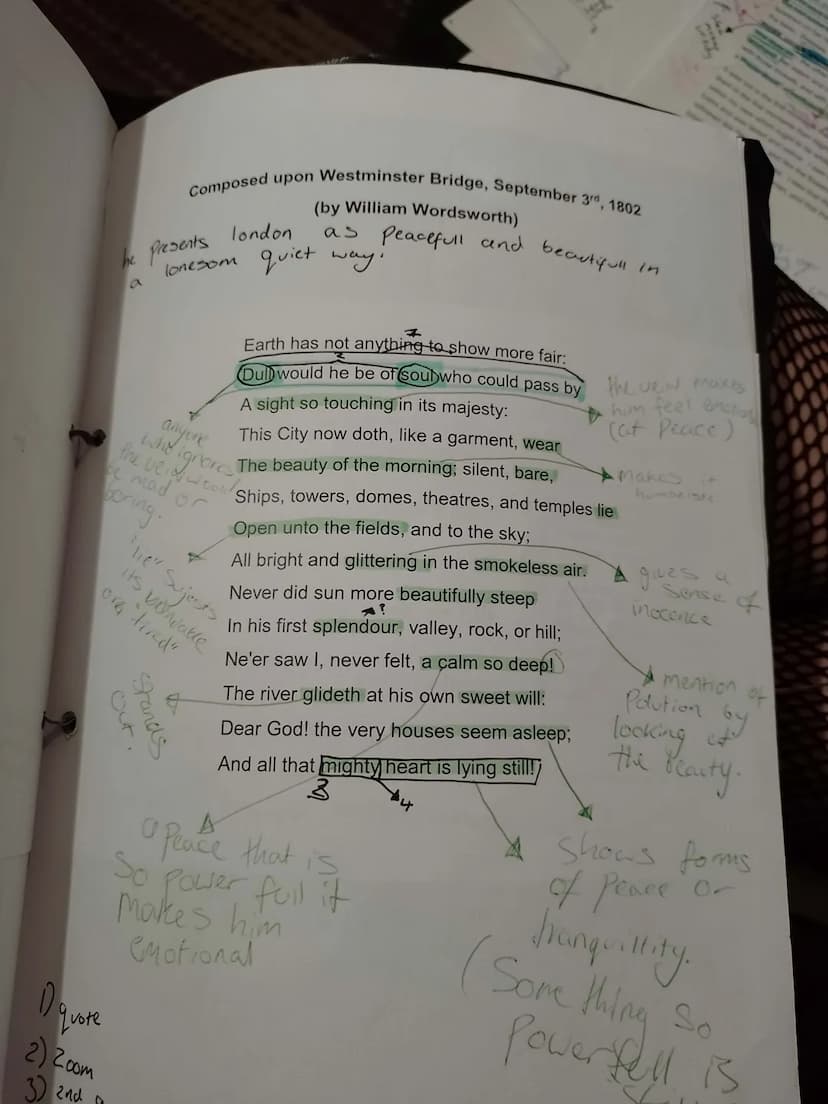 Composed upon Westminster Bridge, September 3rd, 1802
(by William Wordsworth)
he presents london as peacefull and beautifull in
a lonesom quiet way.
Earth has not anything to show more fair:
Dull would he be of soul who could pass by
A sight so touching in its majesty:
This City now doth, like a garment, wear
The beauty of the morning; silent, bare,
Ships, towers, domes, theatres, and temples lie
Open unto the fields, and to the sky;
All bright and glittering in the smokeless air.
Never did sun more beautifully steep
In his first splendour, valley, rock, or hill;
Ne'er saw I, never felt, a calm so deep!
The river glideth at his own sweet will:
Dear God! the very houses seem asleep;
And all that mighty heart is lying still!
3
4
the veiw makes
him feel
(at Peace)
makes it
gives a
sense of
inocence
mention of
Polution by
looking at
the Beauty.
anyone
who ignores
the veiw would
be mad or
boring.
"lie"
its
or "tired"
Stands
out.
Peace that is
So power full it
makes him
emotional
Shows forms
of Peace or
tranquillity.
(Some thing so
Powerfull is
1) quote
2) Zoom
3) 2nd